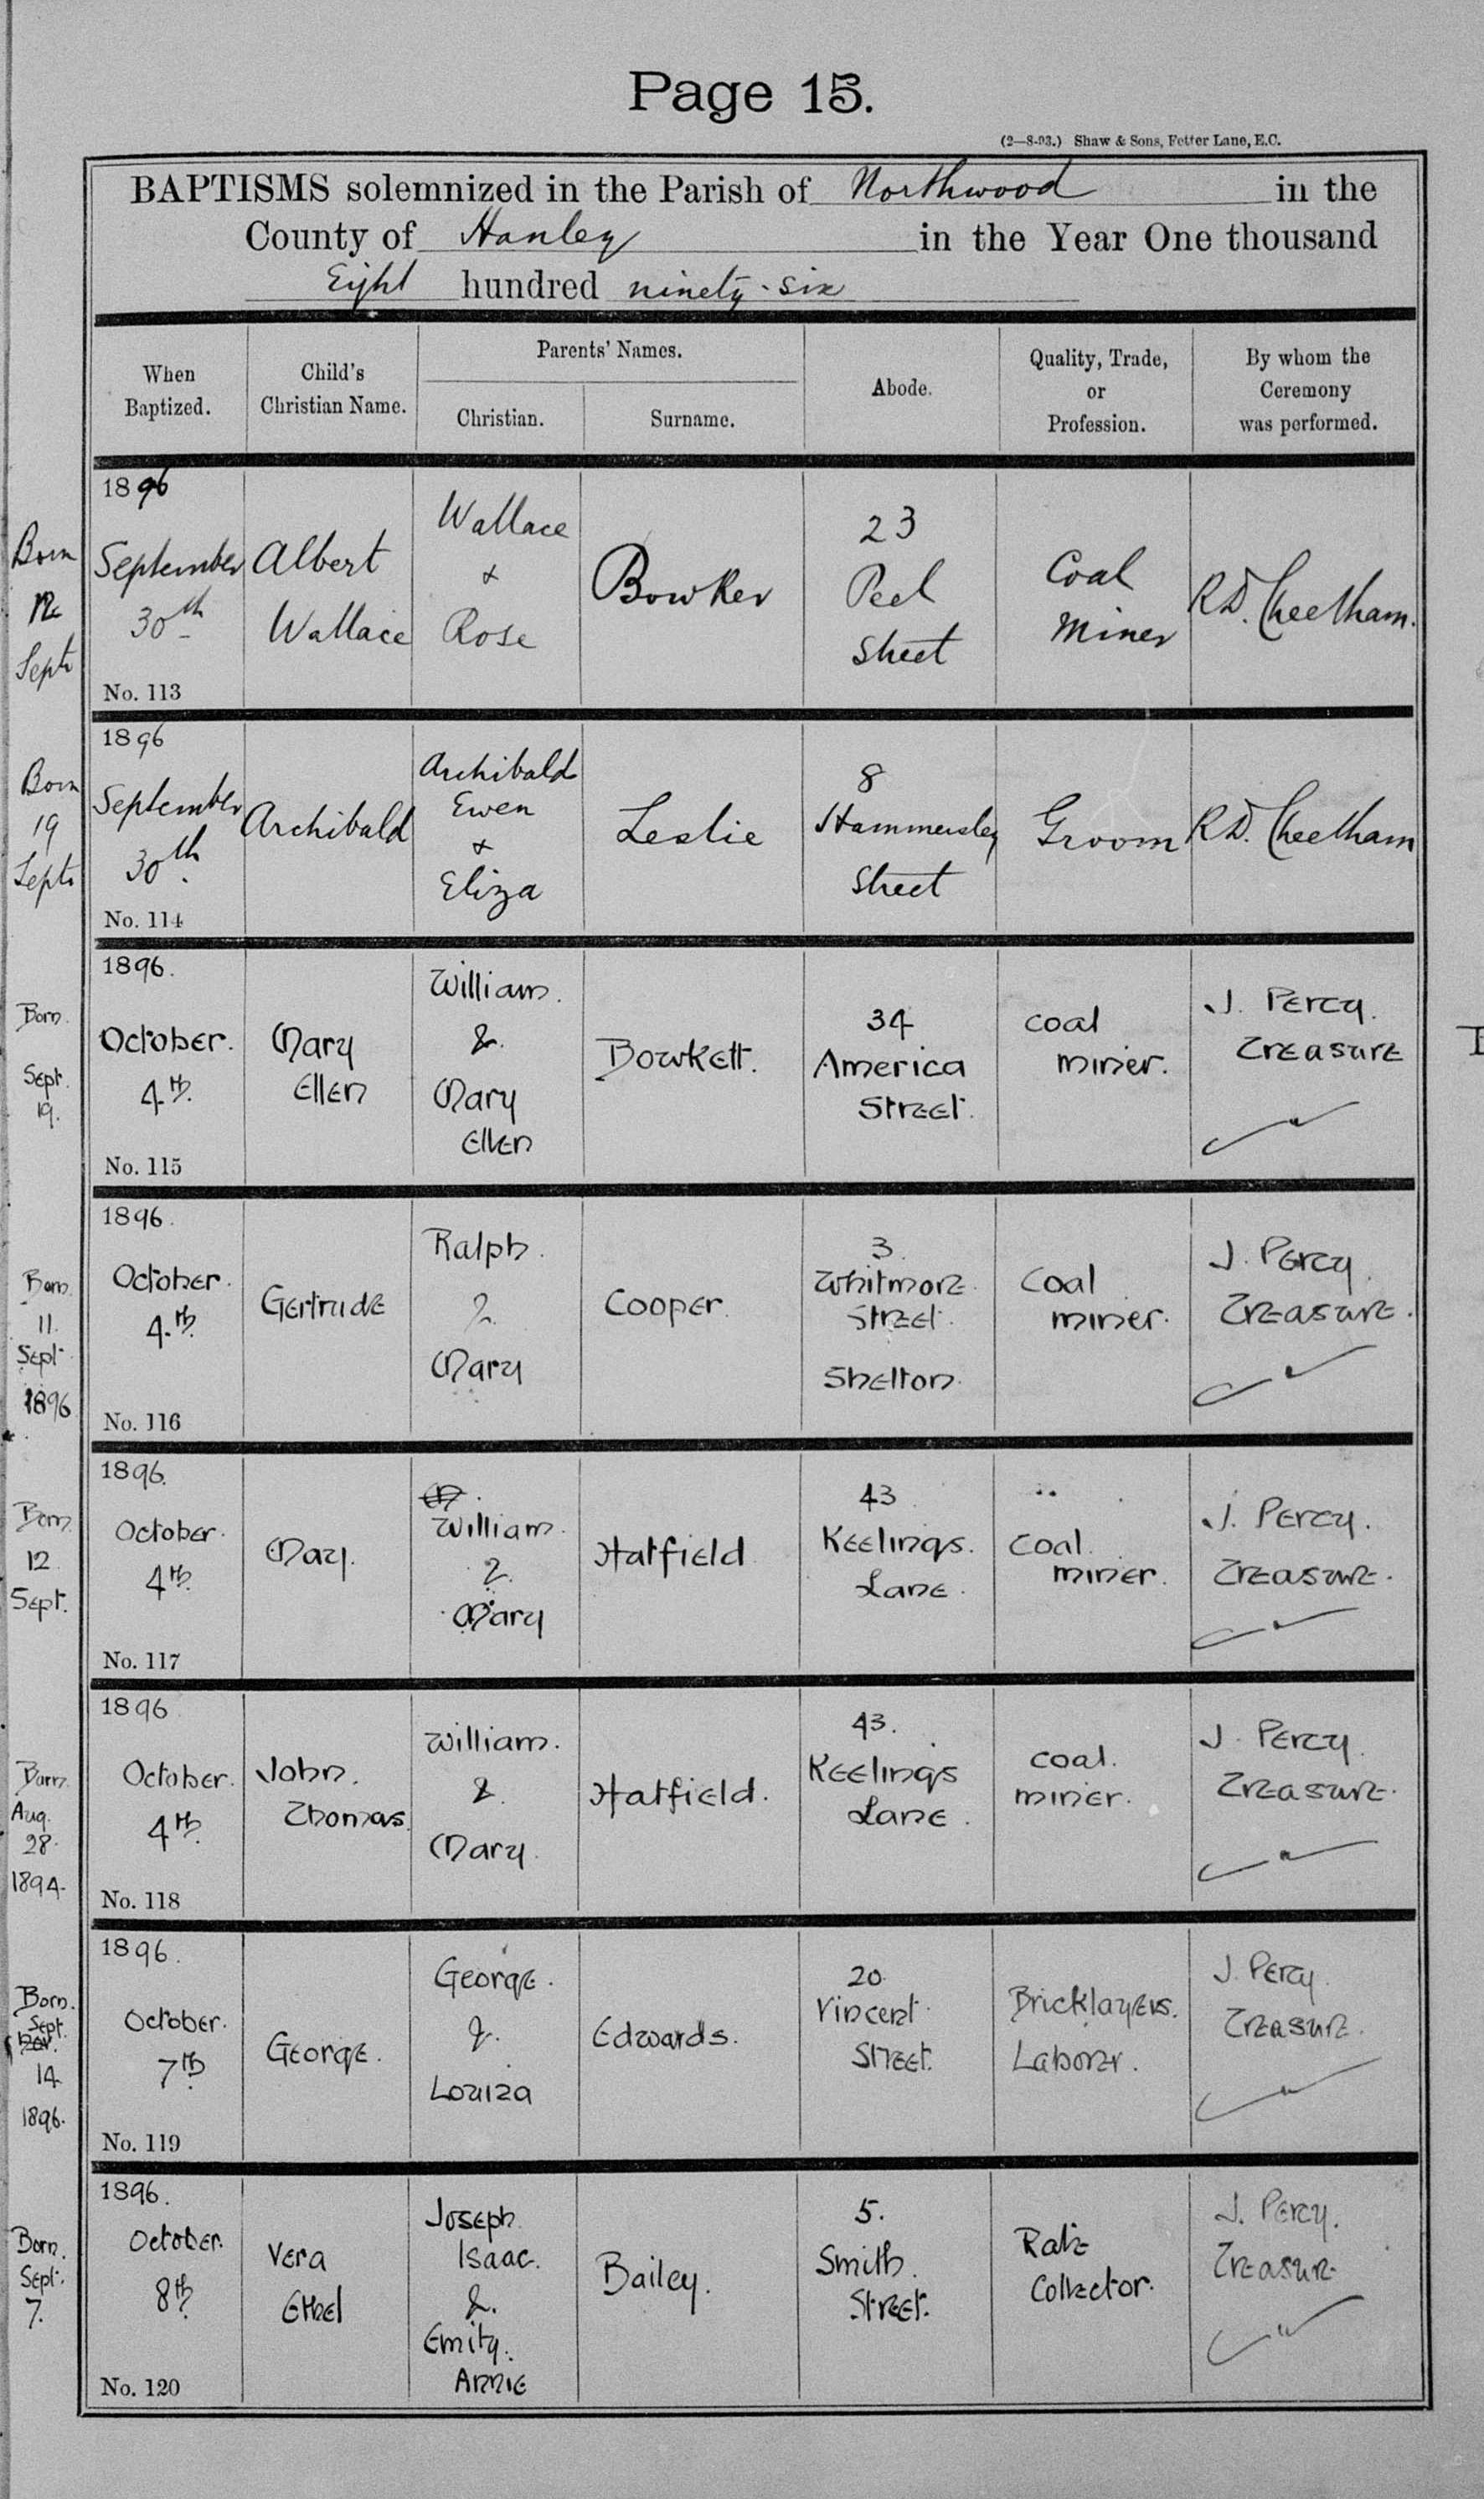 Page 15.
(2—8-93.) Shaw & Sons, Fetter Lane, E.C.
BAPTISMS solemnized in the Parish of Northwood in the
County of Hanley in the Year One thousand
Eight hundred ninety-six
When Baptized.
Child's Christian Name.
Parents' Names.
Christian.
Surname.
Abode.
Quality, Trade, or Profession.
By whom the Ceremony was performed.
Born
12
Septr
1896
September
30th
No. 113
Albert
Wallace
Wallace
&
Rose
Bowker
23
Peel
Street
Coal
Miner
R.D. Cheetham.
Born
19
Septr
1896
September
30th.
No. 114
Archibald
Archibald
Ewen
&
Eliza
Leslie
8
Hammersley
Street
Groom
R.D. Cheetham
Born.
Sept.
19.
1896.
October.
4th.
No. 115
Mary
Ellen
William.
&.
Mary
Ellen
Bowkett.
34
America
Street.
coal
miner.
J. Percy.
Treasure
Born.
11.
Sept.
1896
1896.
October.
4.th.
No. 116
Gertrude
Ralph.
&.
Mary
Cooper.
3.
Whitmore.
Street.
Shelton.
Coal
miner.
J. Percy.
Treasure.
Born.
12.
Sept.
1896.
October.
4th.
No. 117
Mary.
M.
William.
&.
Mary
Hatfield
43
Keelings.
Lane.
Coal.
miner.
J. Percy.
Treasure.
Born.
Aug.
28.
1894.
1896
October.
4th.
No. 118
John.
Thomas.
William.
&.
Mary.
Hatfield.
43.
Keelings
Lane.
coal.
miner.
J. Percy.
Treasure.
Born.
Sept.
14
1896.
1896.
October.
7th.
No. 119
George.
George.
&.
Louiza
Edwards.
20.
Vincent.
Street.
Bricklayers.
Laborer.
J. Percy.
Treasure.
Born.
Sept.
7.
1896.
October.
8th.
No. 120
Vera
Ethel
Joseph.
Isaac.
&.
Emily.
Annie
Bailey.
5.
Smith.
Street.
Rate
Collector.
J. Percy.
Treasure